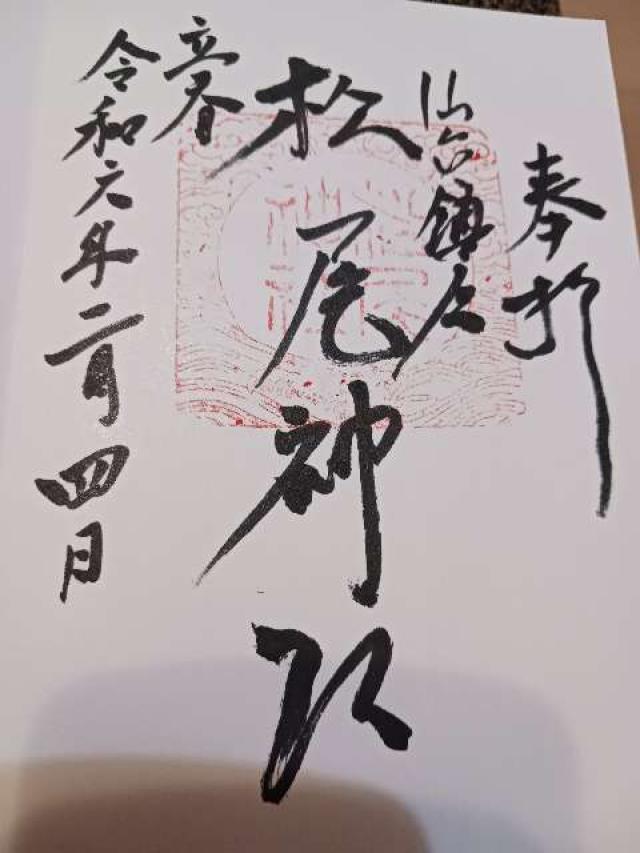 奉拝
仙台鎮座
松尾神社
立春
令和六年二月四日